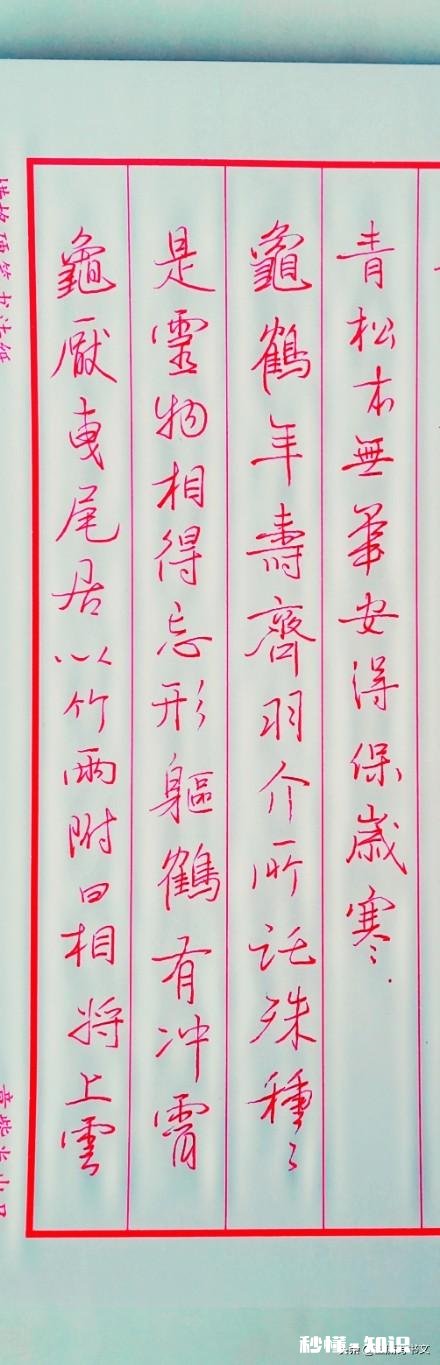 青松本無華安得保歲寒
龜鶴年壽齊羽介所託殊種〻
是靈物相得忘形軀鶴有冲霄
龜厭曳尾居以竹兩附口相將上雲
秒懂 知识